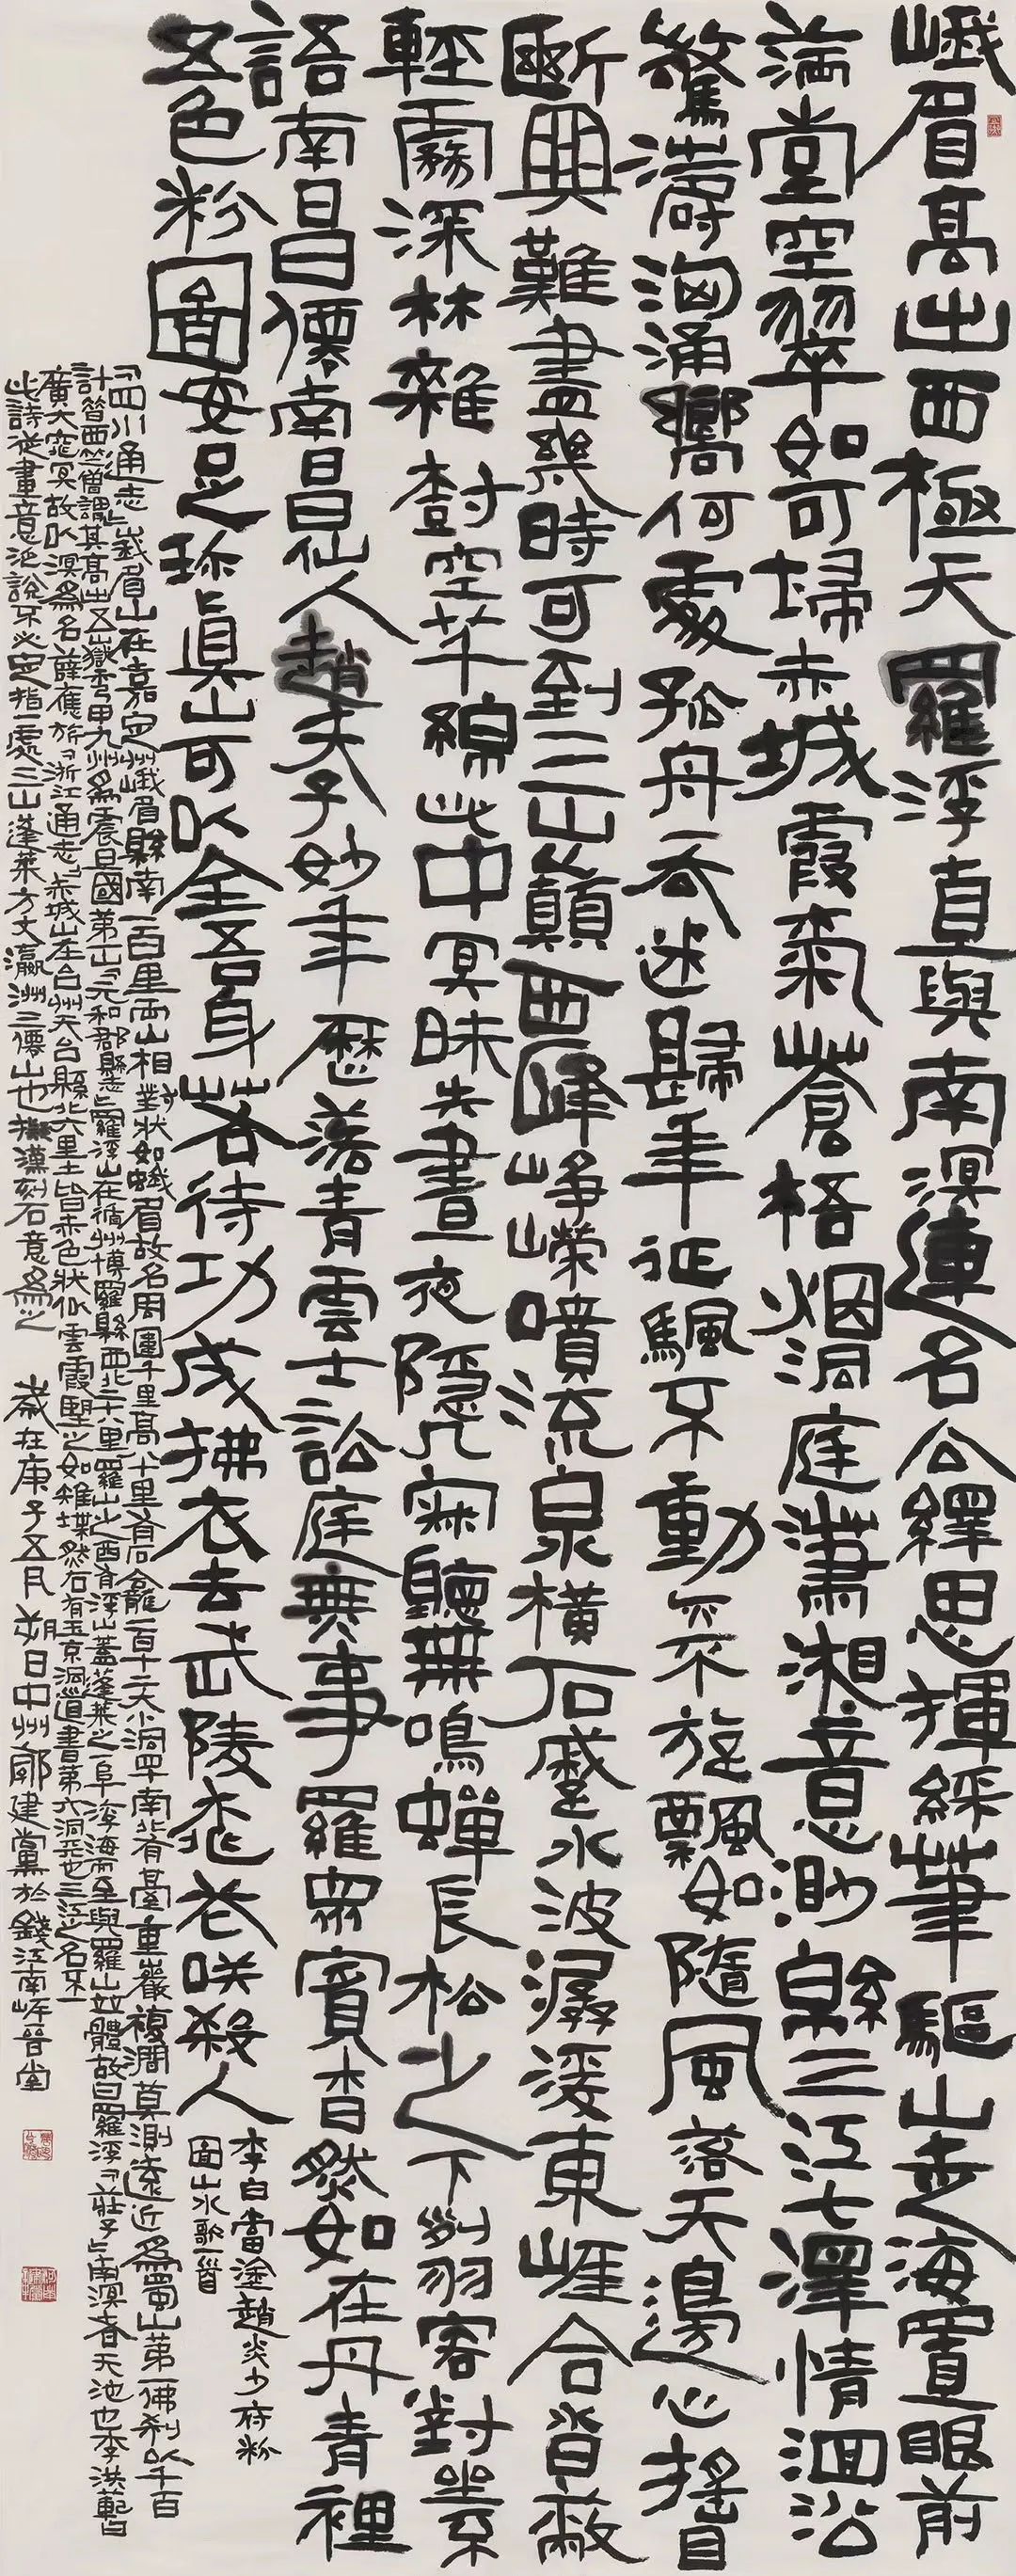 峨眉高出西極天羅浮直與南溟連名公繹思揮綵筆驅山走海置眼前
滿堂空翠如可掃赤城霞氣蒼梧烟洞庭瀟湘意渺緜三江七澤情洄沿
驚濤洶涌嚮何處孤舟一去迷歸年征颿不動亦不旋飄如隨風落天邊心搖目
斷興難盡幾時可到三山巔西峰崢嶸噴流泉橫石蹙水波潺湲東崖合沓蔽
輕霧深林雜樹空芊綿此中冥昧失晝夜隱几寂聽無鳴蟬長松之下列羽客對坐不
語南昌僊南昌仙人趙夫子妙年歷落青雲士訟庭無事羅衆賓杳然如在丹青裡
五色粉圖安足珍真山可以全吾身若待功成拂衣去武陵桃花咲殺人
李白當塗趙炎少府粉
圖山水歌一首
『四川通志』峨眉山在嘉定州峨眉縣南一百里兩山相對狀如蛾眉故名周圍千里高八十里有石龕一百十二大小洞四十南北有臺重巖複澗莫測遠近為蜀山第一佛刹以千百
計昔西竺僧謂其高出五嶽秀甲九州為震旦國第一山『元和郡縣志』羅浮山在循州博羅縣西北二十八里羅山之西有浮山蓋蓬萊之一阜浮海而至與羅山並體故曰羅浮『莊子』南溟者天池也李洪範曰
廣大窈冥故以溟為名薛應旂『浙江通志』赤城山在台州天台縣北六里土皆赤色狀似雲霞望之如雉堞然石有玉京洞道書第六洞天也三江之名不一
此詩從畫意泛說不必定指一處三山蓬萊方丈瀛洲三僊山也擬漢刻石意為之 歲在庚子五月朔日中州郭建黨於錢江南岸晉堂